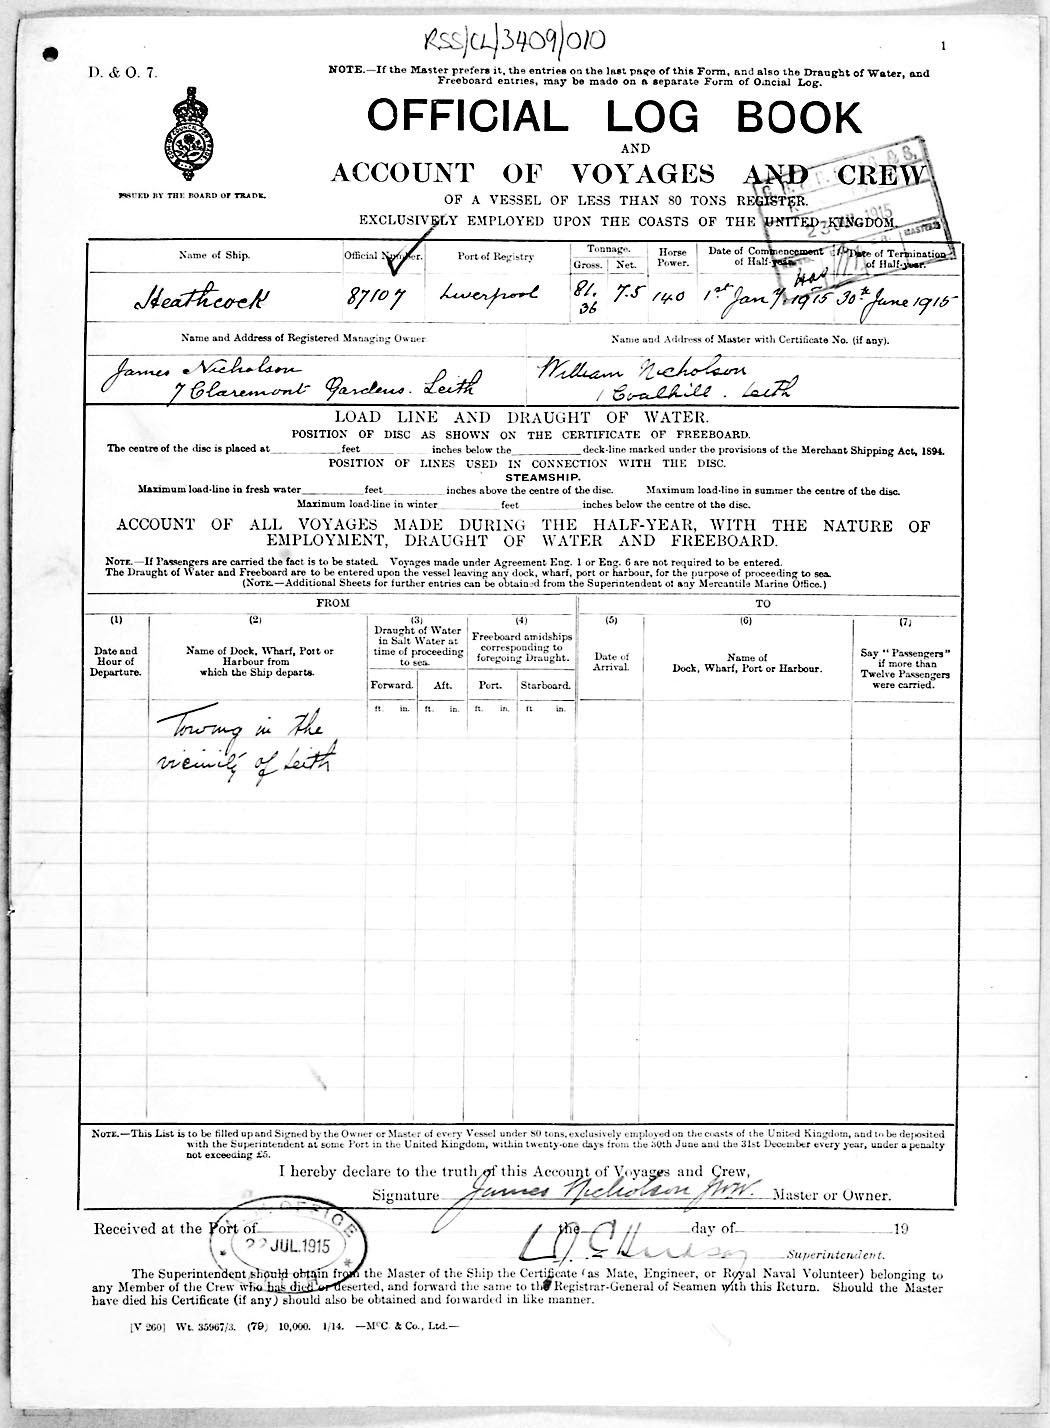 RSS/CL/3409/010
1
D. & O. 7.
NOTE.—If the Master prefers it, the entries on the last page of this Form, and also the Draught of Water, and
Freeboard entries, may be made on a separate Form of Official Log.
OFFICIAL LOG BOOK
AND
ACCOUNT OF VOYAGES AND CREW
ISSUED BY THE BOARD OF TRADE.
OF A VESSEL OF LESS THAN 80 TONS REGISTER.
EXCLUSIVELY EMPLOYED UPON THE COASTS OF THE UNITED KINGDOM.
1915
Name of Ship.
Official Number.
Port of Registry
Tonnage.
Gross. Net.
Horse Power.
Date of Commencement of Half-year.
Date of Termination of Half-year.
Heathcock
87107
Liverpool
81.36
7.5
140
1st Jan 1915
30th June 1915
Name and Address of Registered Managing Owner
Name and Address of Master with Certificate No. (if any).
James Nicholson
7 Claremont Gardens. Leith
William Nicholson
1 Coalhill. Leith
LOAD LINE AND DRAUGHT OF WATER.
POSITION OF DISC AS SHOWN ON THE CERTIFICATE OF FREEBOARD.
The centre of the disc is placed at feet inches below the deck-line marked under the provisions of the Merchant Shipping Act, 1894.
POSITION OF LINES USED IN CONNECTION WITH THE DISC.
STEAMSHIP.
Maximum load-line in fresh water feet inches above the centre of the disc. Maximum load-line in summer the centre of the disc.
Maximum load-line in winter feet inches below the centre of the disc.
ACCOUNT OF ALL VOYAGES MADE DURING THE HALF-YEAR, WITH THE NATURE OF
EMPLOYMENT, DRAUGHT OF WATER AND FREEBOARD.
NOTE.—If Passengers are carried the fact is to be stated. Voyages made under Agreement Eng. 1 or Eng. 6 are not required to be entered.
The Draught of Water and Freeboard are to be entered upon the vessel leaving any dock, wharf, port or harbour, for the purpose of proceeding to sea.
(NOTE.—Additional Sheets for further entries can be obtained from the Superintendent of any Mercantile Marine Office.)
FROM
TO
(1)
Date and
Hour of
Departure.
(2)
Name of Dock, Wharf, Port or
Harbour from
which the Ship departs.
(3)
Draught of Water
in Salt Water at
time of proceeding
to sea.
Forward. Aft.
(4)
Freeboard amidships
corresponding to
foregoing Draught.
Port. Starboard.
(5)
Date of
Arrival.
(6)
Name of
Dock, Wharf, Port or Harbour.
(7)
Say "Passengers"
if more than
Twelve Passengers
were carried.
ft. in. ft. in. ft. in. ft in.
Towing in the
vicinity of Leith
NOTE.—This List is to be filled up and Signed by the Owner or Master of every Vessel under 80 tons, exclusively employed on the coasts of the United Kingdom, and to be deposited
with the Superintendent at some Port in the United Kingdom, within twenty-one days from the 30th June and the 31st December every year, under a penalty
not exceeding £5.
I hereby declare to the truth of this Account of Voyages and Crew,
Signature James Nicholson Master or Owner.
Received at the Port of the day of 19
OFFICE
22 JUL.1915
Superintendent.
The Superintendent should obtain from the Master of the Ship the Certificate (as Mate, Engineer, or Royal Naval Volunteer) belonging to
any Member of the Crew who has died or deserted, and forward the same to the Registrar-General of Seamen with this Return. Should the Master
have died his Certificate (if any) should also be obtained and forwarded in like manner.
[V 260] Wt. 35967/3. (79) 10,000. 1/14. —McC. & Co., Ltd.—